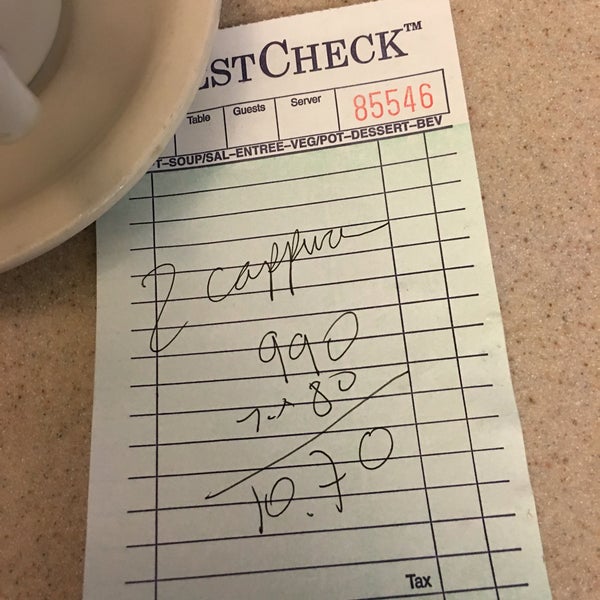 ESTCHECK™
Table Guests Server 85546
T-SOUP/SAL-ENTREE-VEG/POT-DESSERT-BEV
2 cappucc
990
80
10.70
Tax